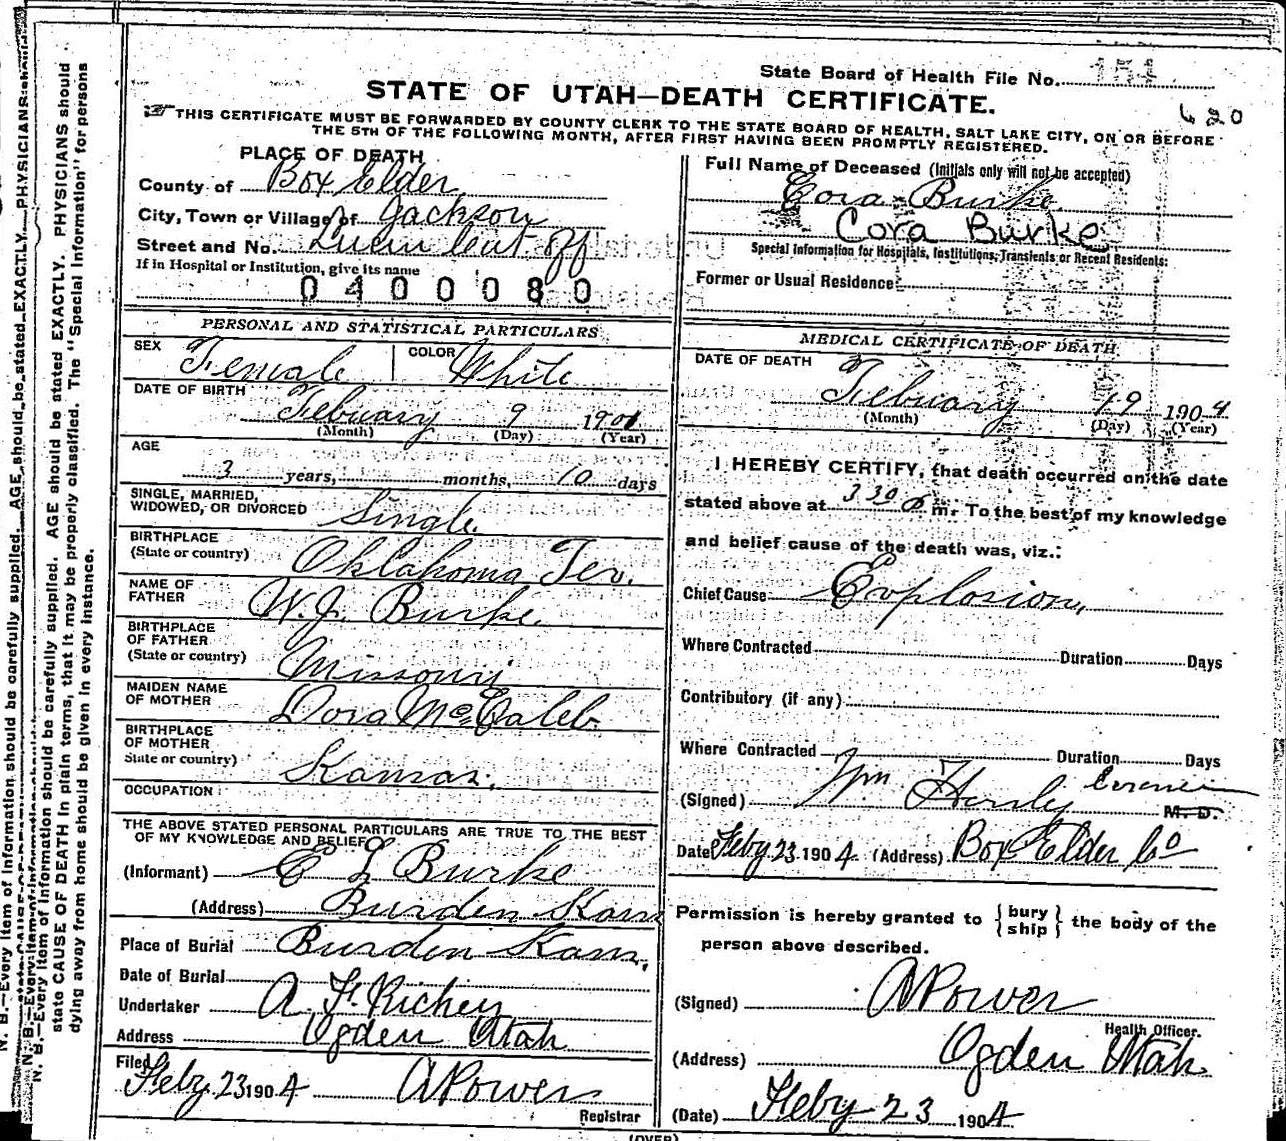 State Board of Health File No. 154
STATE OF UTAH—DEATH CERTIFICATE.
620
THIS CERTIFICATE MUST BE FORWARDED BY COUNTY CLERK TO THE STATE BOARD OF HEALTH, SALT LAKE CITY, ON OR BEFORE
THE 5TH OF THE FOLLOWING MONTH, AFTER FIRST HAVING BEEN PROMPTLY REGISTERED.
PLACE OF DEATH
County of Box Elder
City, Town or Village of Jackson
Street and No. Lucin Cut Off
If in Hospital or Institution, give its name
0400080
PERSONAL AND STATISTICAL PARTICULARS
SEX Female COLOR White
DATE OF BIRTH Febuary 9 1901
(Month) (Day) (Year)
AGE
3 years, months, 10 days
SINGLE, MARRIED,
WIDOWED, OR DIVORCED Single
BIRTHPLACE
(State or country) Oklahoma Ter.
NAME OF
FATHER W. J. Burke
BIRTHPLACE
OF FATHER
(State or country) Missouri
MAIDEN NAME
OF MOTHER Dora McCaleb
BIRTHPLACE
OF MOTHER
State or country) Kansas.
OCCUPATION
THE ABOVE STATED PERSONAL PARTICULARS ARE TRUE TO THE BEST
OF MY KNOWLEDGE AND BELIEF
(Informant) C L Burke
(Address) Burden Kans
Place of Burial Burden Kans.
Date of Burial
Undertaker A. F. Richey
Address Ogden Utah
Filed
Feby 23 1904 A Power
Registrar
Full Name of Deceased (Initials only will not be accepted)
Cora Burke
Cora Burke
Special Information for Hospitals, Institutions, Transients or Recent Residents:
Former or Usual Residence
MEDICAL CERTIFICATE OF DEATH
DATE OF DEATH
Febuary 19 1904
(Month) (Day) (Year)
I HEREBY CERTIFY, that death occurred on the date
stated above at 3 30 P m. To the best of my knowledge
and belief cause of the death was, viz.:
Chief Cause Explosion,
Where Contracted Duration Days
Contributory (if any)
Where Contracted Duration Days
(Signed) Wm Coroner M. D.
Date Feby 23 1904 (Address) Box Elder Co
Permission is hereby granted to {bury
ship} the body of the
person above described.
(Signed) A Power
Health Officer.
(Address) Ogden Utah
(Date) Feby 23 1904
(OVER)
N. B.—Every item of information should be carefully supplied. AGE should be stated EXACTLY. PHYSICIANS should
state CAUSE OF DEATH in plain terms, that it may be properly classified. The "Special Information" for persons
dying away from home should be given in every instance.